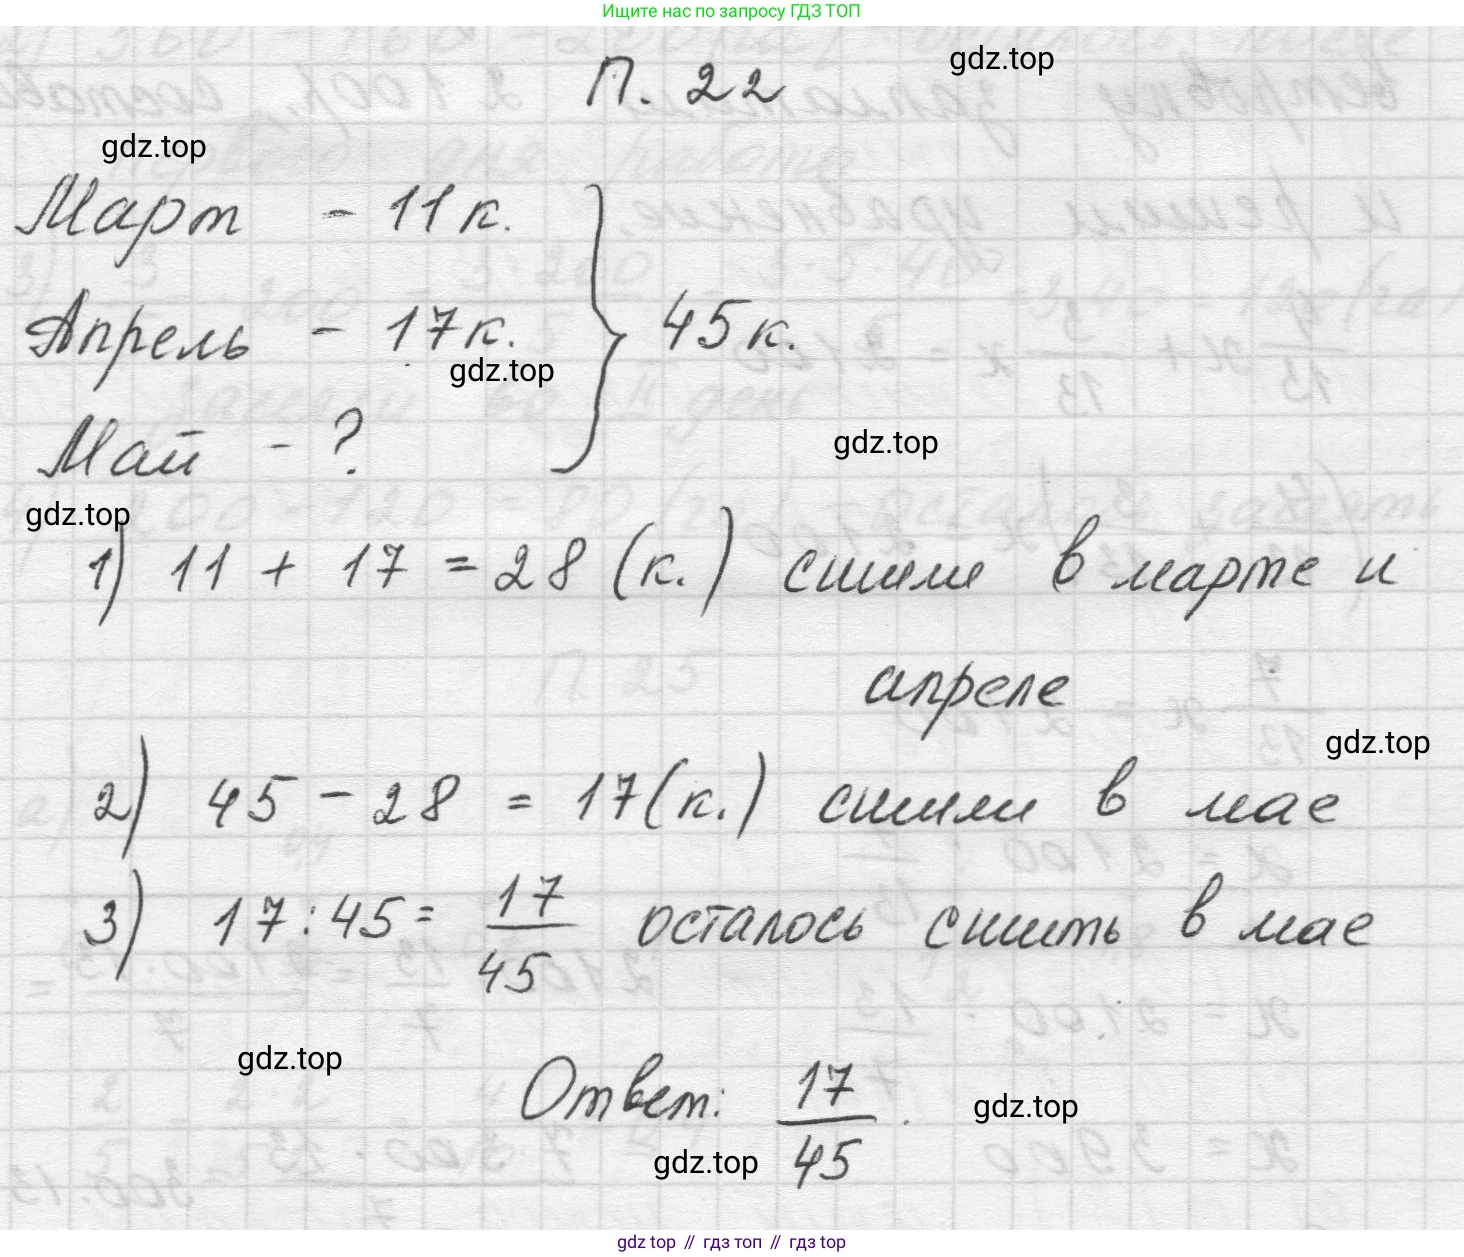 Ищите нас по запросу ГДЗ ТОП
П. 22
gdz.top
gdz.top
Март - 11 к.
Апрель - 17 к.
45 к.
gdz.top
Май - ?
gdz.top
gdz.top
1) 11 + 17 = 28 (к.) сшили в марте и
апреле
gdz.top
2) 45 - 28 = 17 (к.) сшили в мае
3) 17 : 45 = 17/45 осталось сшить в мае
gdz.top
Ответ: 17/45.
gdz.top
gdz.top
gdz top // гдз топ // gdz top